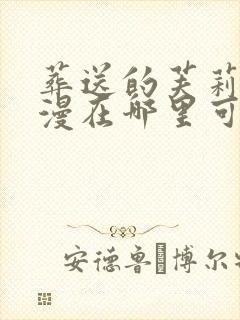 葬送的芙莉
漫在哪里可
安德鲁·博尔